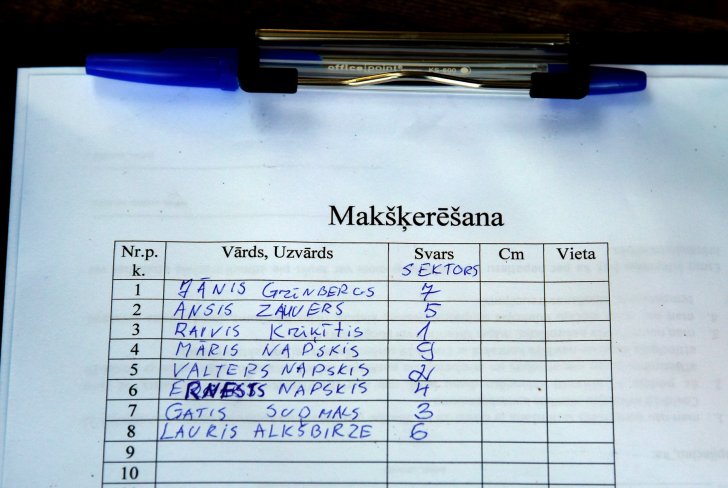 officepoint KS-600
Makšķerēšana
Nr.p.k. Vārds, Uzvārds Svars SEKTORS Cm Vieta
1 JĀNIS GRĪNBERGS 7
2 ANSIS ZAUVERS 5
3 RAIVIS KRIĶĪTIS 1
4 MĀRIS NAPSKIS 9
5 VALTERS NAPSKIS 2
6 ERNESTS NAPSKIS 4
7 GATIS SUDMALS 3
8 LAURIS ALKŠBIRZE 6
9
10